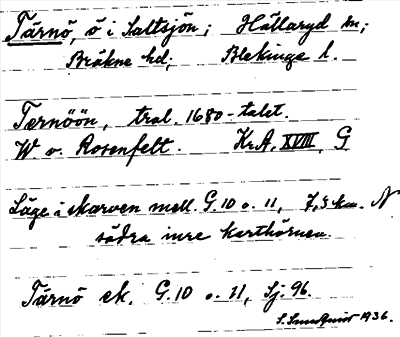 Tärnö, ö i Saltsjön; Hällaryd sn;
Bräkne hd; Blekinge l.
Ternöön, trol. 1680-talet.
W. v. Rosenfelt. Kr.A. XVIII, G
Läge i skarven mell. G.10 o. 11, 7,5 km. N
södra inre karthörnen.
Tärnö ek. G.10 o. 11, Sj. 96.
S. Sundquist 1936.